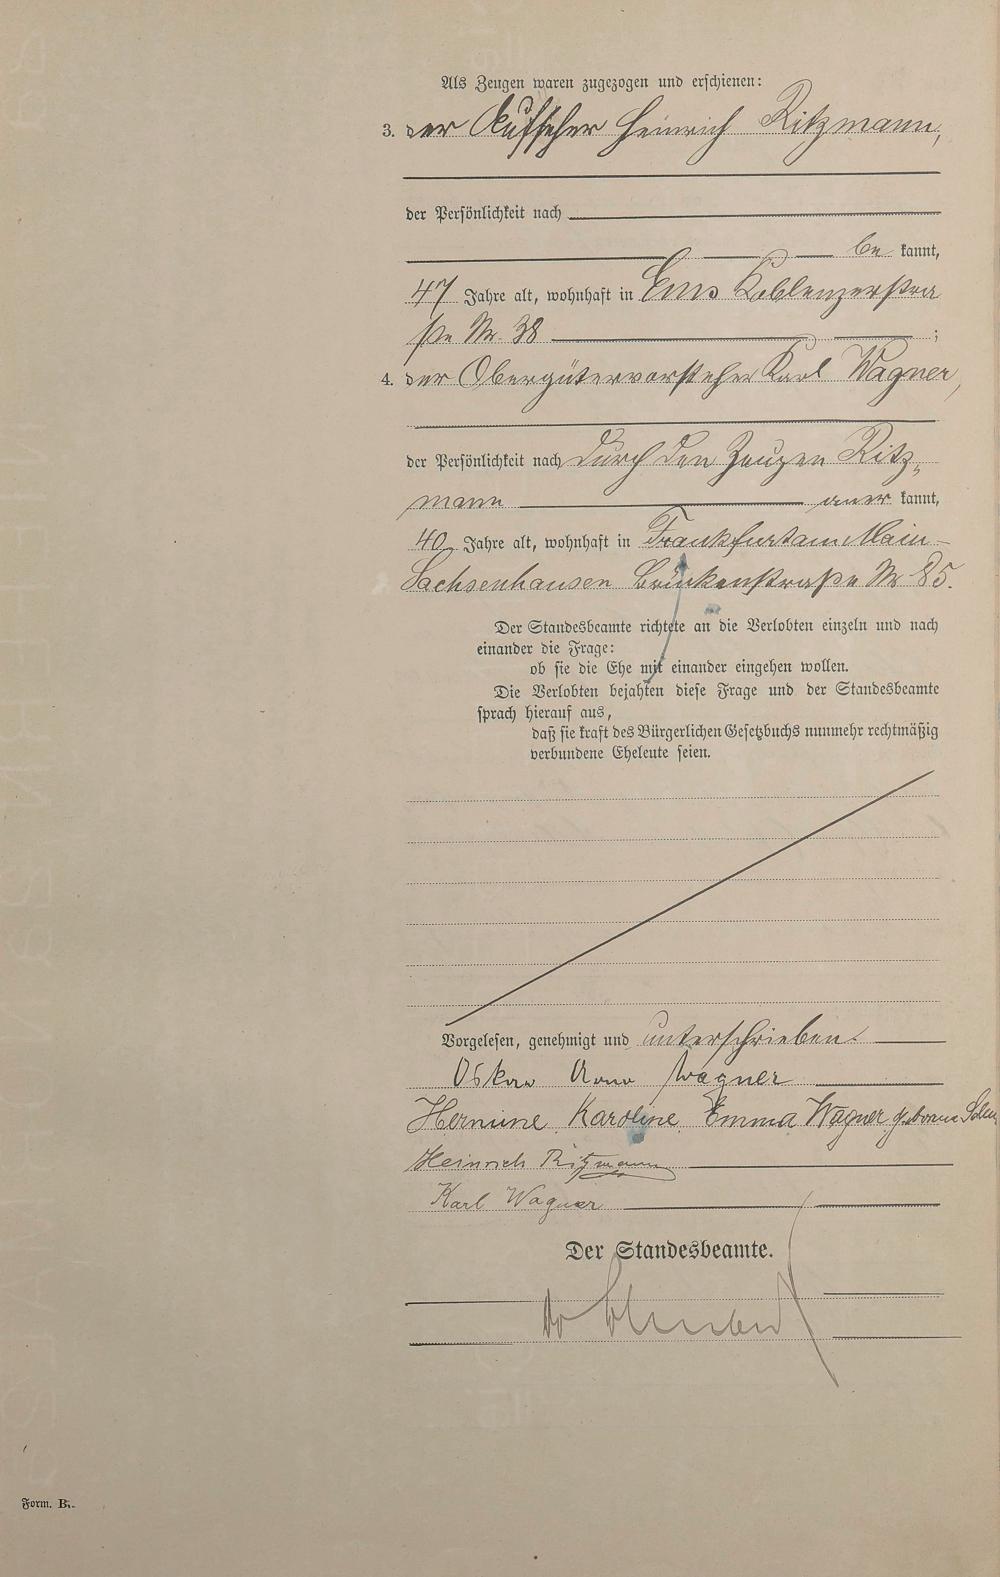 Als Zeugen waren zugezogen und erschienen:
3. der Aufseher Heinrich Ritzmann,
der Persönlichkeit nach
be kannt,
47 Jahre alt, wohnhaft in Ems Koblenzerstra
ße Nr. 38 ;
4. der Obergütervorsteher Karl Wagner,
der Persönlichkeit nach durch den Zeugen Ritz-
mann aner kannt,
40 Jahre alt, wohnhaft in Frankfurt am Main-
Sachsenhausen Brückenstraße Nr 85.
Der Standesbeamte richtete an die Verlobten einzeln und nach
einander die Frage:
ob sie die Ehe mit einander eingehen wollen.
Die Verlobten bejahten diese Frage und der Standesbeamte
sprach hierauf aus,
daß sie kraft des Bürgerlichen Gesetzbuchs nunmehr rechtmäßig
verbundene Eheleute seien.
Vorgelesen, genehmigt und unterschrieben.
Oskar Arno Wagner
Hermine Karoline Emma Wagner geborene
Heinrich Ritzmann
Karl Wagner
Der Standesbeamte.
Dr
Form. B.